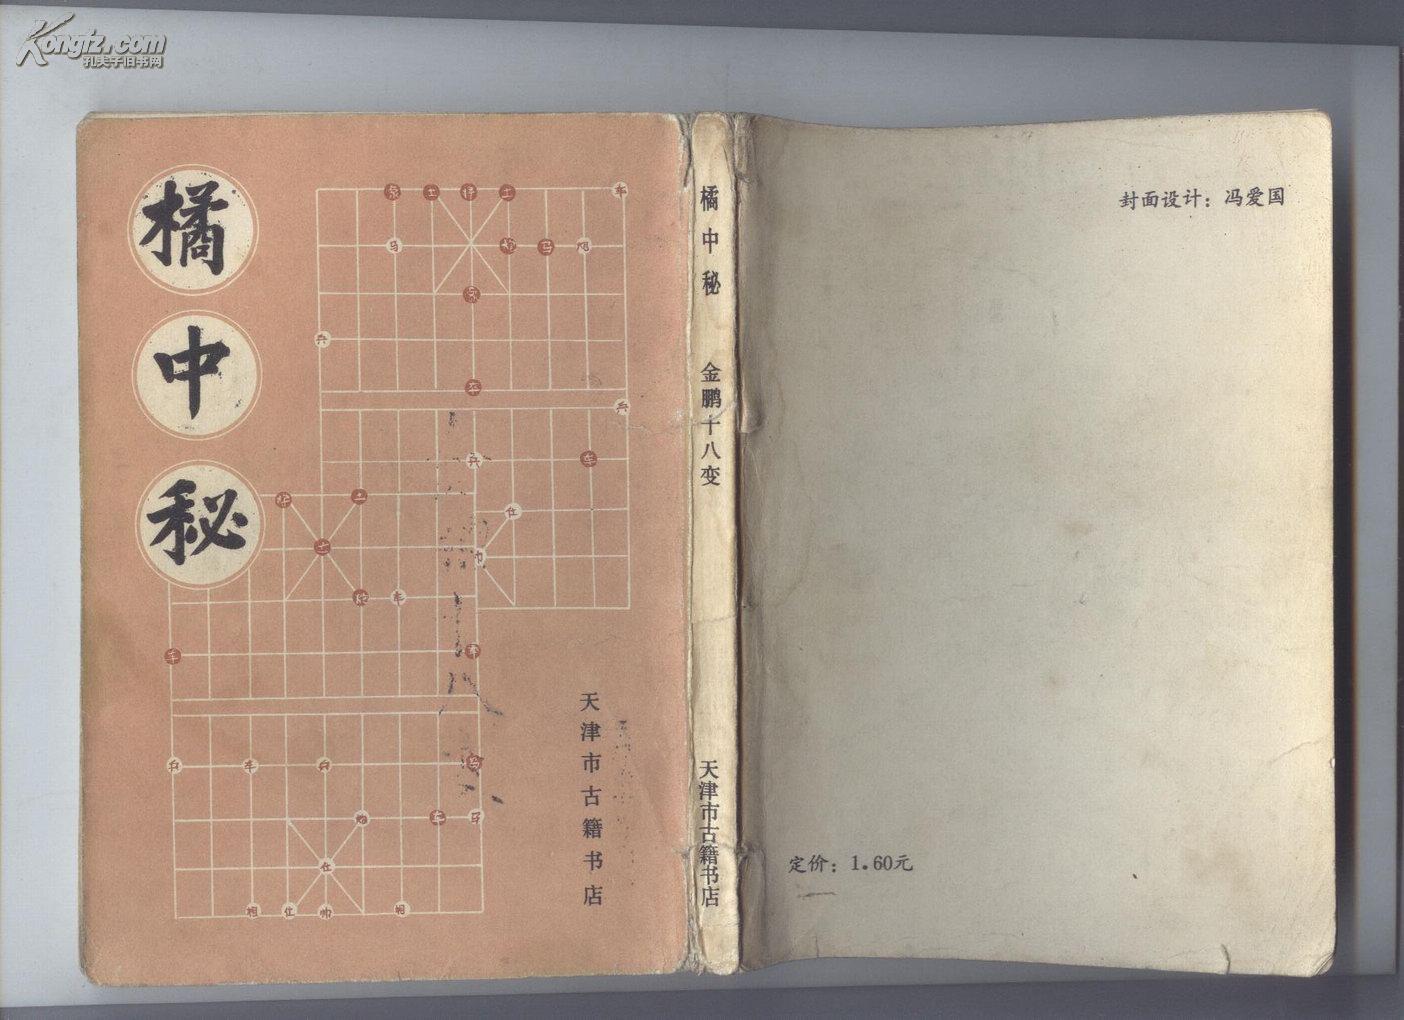 Kongfz.com
孔夫子旧书网
橘中秘
天津市古籍书店
橘中秘
金鹏十八变
天津市古籍书店
封面设计：冯爱国
定价：1.60元